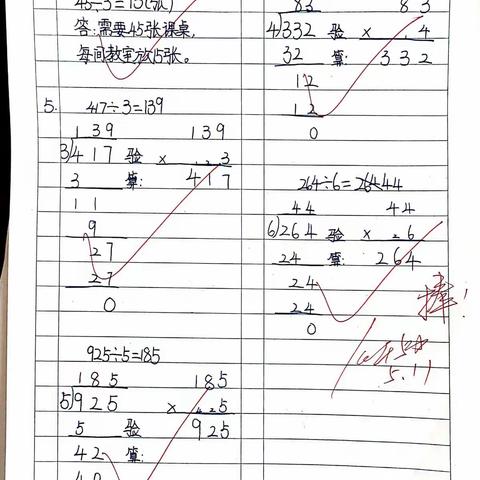 45÷3=15(张)
答:需要45张课桌,
每间教室放15张。
5. 417÷3=139
139
3)417 验
3 算:
11
9
27
27
0
139
× 3
417
925÷5=185
185
5)925
5 验
42 算:
40
185
× 5
925
83
4)332 验
32 算:
12
12
0
83
× 4
332
264÷6=44
44
6)264 验
24 算:
24
24
0
44
× 6
264
棒!
5.11